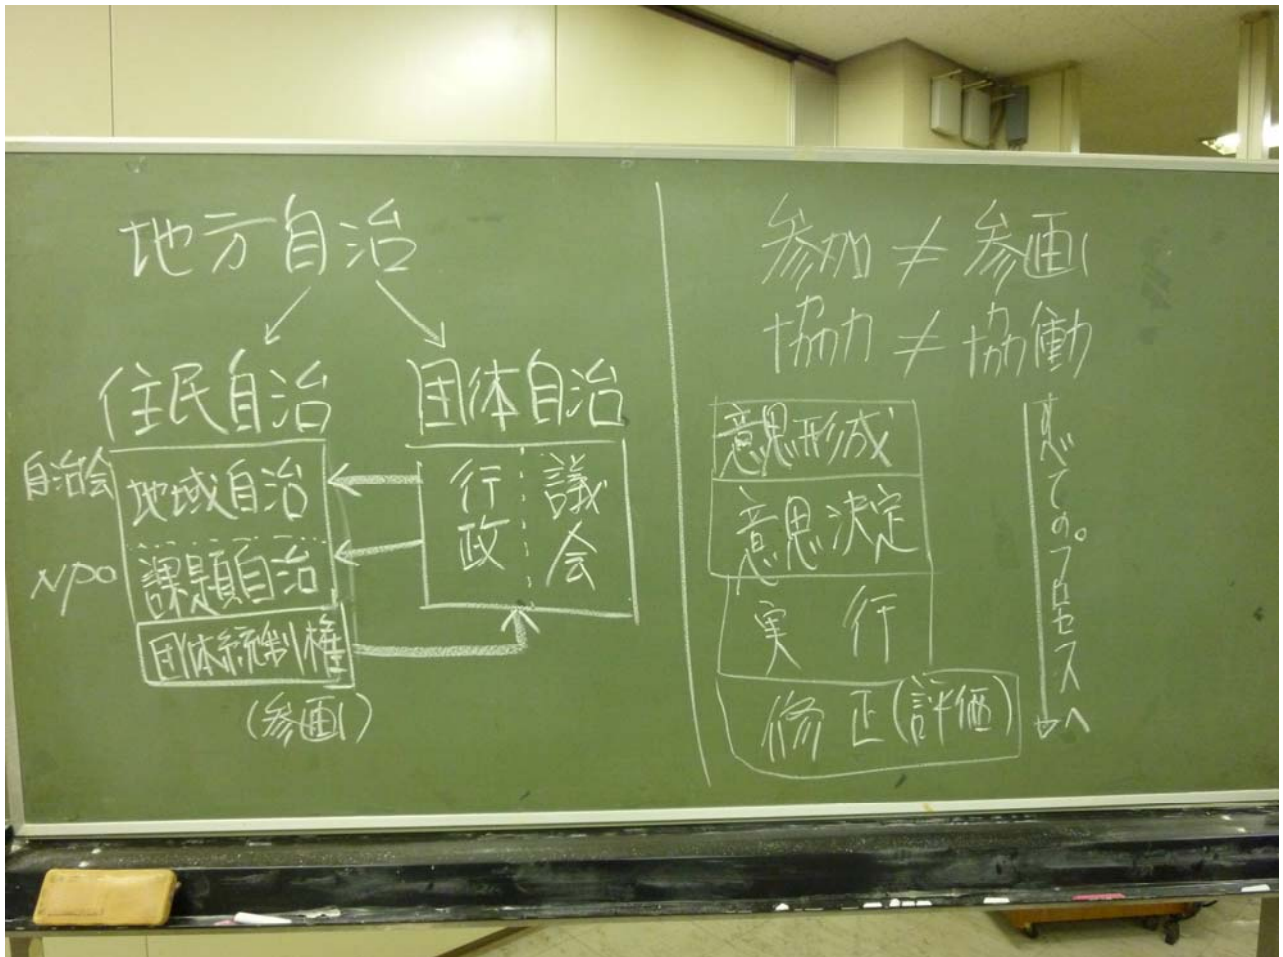 地方自治
住民自治
自治会 地域自治
NPO 課題自治
団体統制権
(参画)
団体自治
行政
議会
参加 ≠ 参画
協力 ≠ 協働
意思形成
意思決定
実行
修正(評価)
すべてのプロセスへ